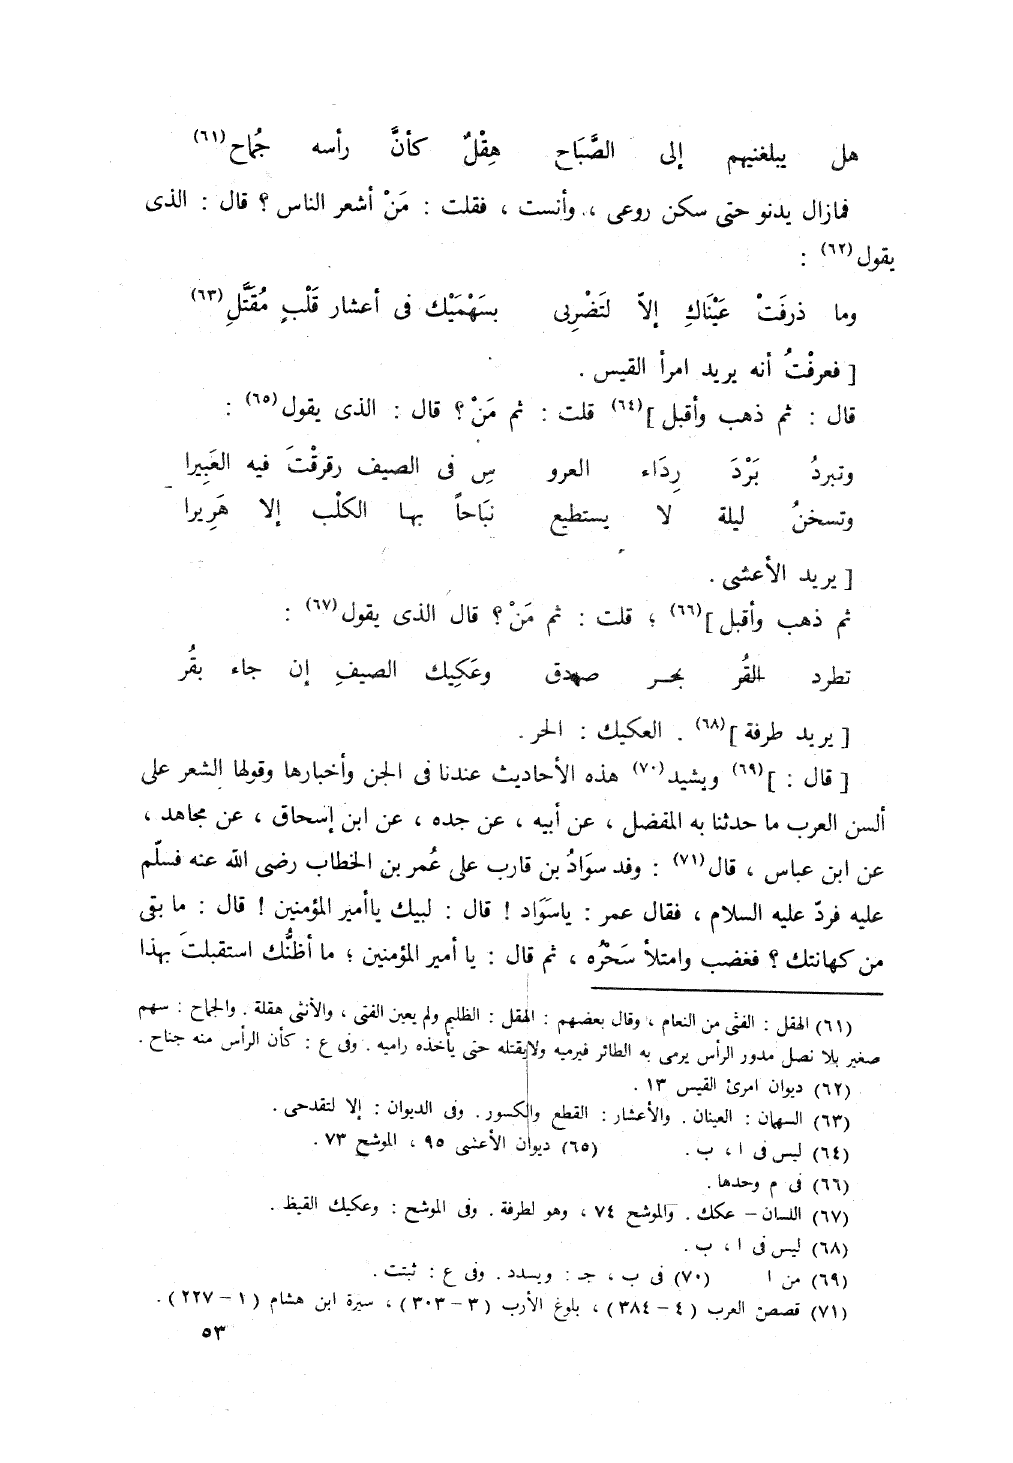 هل يبلغنيهم إلى الصَّبَاح هِقْلٌ كأنَّ رأسه جُماح(٦١)
فمازال يدنو حتى سكن روعى ، وأنست ، فقلت : مَنْ أشعر الناس ؟ قال : الذى
يقول(٦٢) :
وما ذرفَتْ عَيْنَاكِ إلاّ لتَضْرِبى بسَهْمَيْك فى أعشار قَلْبٍ مُقَتَّلِ(٦٣)
[ فعرفْتُ أنه يريد امرأ القيس .
قال : ثم ذهب وأقبل ](٦٤) قلت : ثم مَنْ ؟ قال : الذى يقول(٦٥) :
وتبردُ بَرْدَ رِدَاء العرو سِ فى الصيف رقرقْتَ فيه العَبِيرا
وتسخنُ ليلة لا يستطيع نبَاحاً بها الكلْب إلا هَرِيرا
[ يريد الأعشى .
ثم ذهب وأقبل ](٦٦) ؛ قلت : ثم مَنْ ؟ قال الذى يقول(٦٧) :
تطرد القُر بحـر صدق وعَكِيك الصيفِ إن جاء بقُر
[ يريد طرفة ](٦٨) . العكيك : الحر .
[ قال : ](٦٩) ويشيد(٧٠) هذه الأحاديث عندنا فى الجن وأخبارها وقولها الشعر على
ألسن العرب ما حدثنا به المفضل ، عن أبيه ، عن جده ، عن ابن إسحاق ، عن مجاهد ،
عن ابن عباس ، قال(٧١) : وفد سوَادُ بن قارب على عُمر بن الخطاب رضى الله عنه فسلّم
عليه فردّ عليه السلام ، فقال عمر : ياسَوَاد ! قال : لبيك ياأمير المؤمنين ! قال : ما بقى
من كهانتك ؟ فغضب وامتلأ سَحْرُه ، ثم قال : يا أمير المؤمنين ؛ ما أظنُّك استقبلتَ بهذا
(٦١) الهقل : الفتى من النعام ، وقال بعضهم : الهقل : الظليم ولم يعين الفتى ، والأنثى هقلة . والجماح : سهم
صغير بلا نصل مدور الرأس يرمى به الطائر فيرميه ولايقتله حتى يأخذه راميه . وفى ع : كأن الرأس منه جناح .
(٦٢) ديوان امرئ القيس ١٣ .
(٦٣) السهمان : العينان . والأعشار : القطع والكسور . وفى الديوان : إلا لتقدحى .
(٦٤) ليس فى ا ، ب . (٦٥) ديوان الأعشى ٩٥ ، الموشح ٧٣ .
(٦٦) فى م وحدها .
(٦٧) اللسان – عكك . والموشح ٧٤ ، وهو لطرفة . وفى الموشح : وعكيك القيظ .
(٦٨) ليس فى ا ، ب .
(٦٩) من ا (٧٠) فى ب ، جـ : ويسدد . وفى ع : ثبتت .
(٧١) قصص العرب ( ٤ – ٣٨٤ ) ، بلوغ الأرب ( ٣ – ٣٠٣ ) ، سيرة ابن هشام ( ١ – ٢٢٧ ) .
٥٣